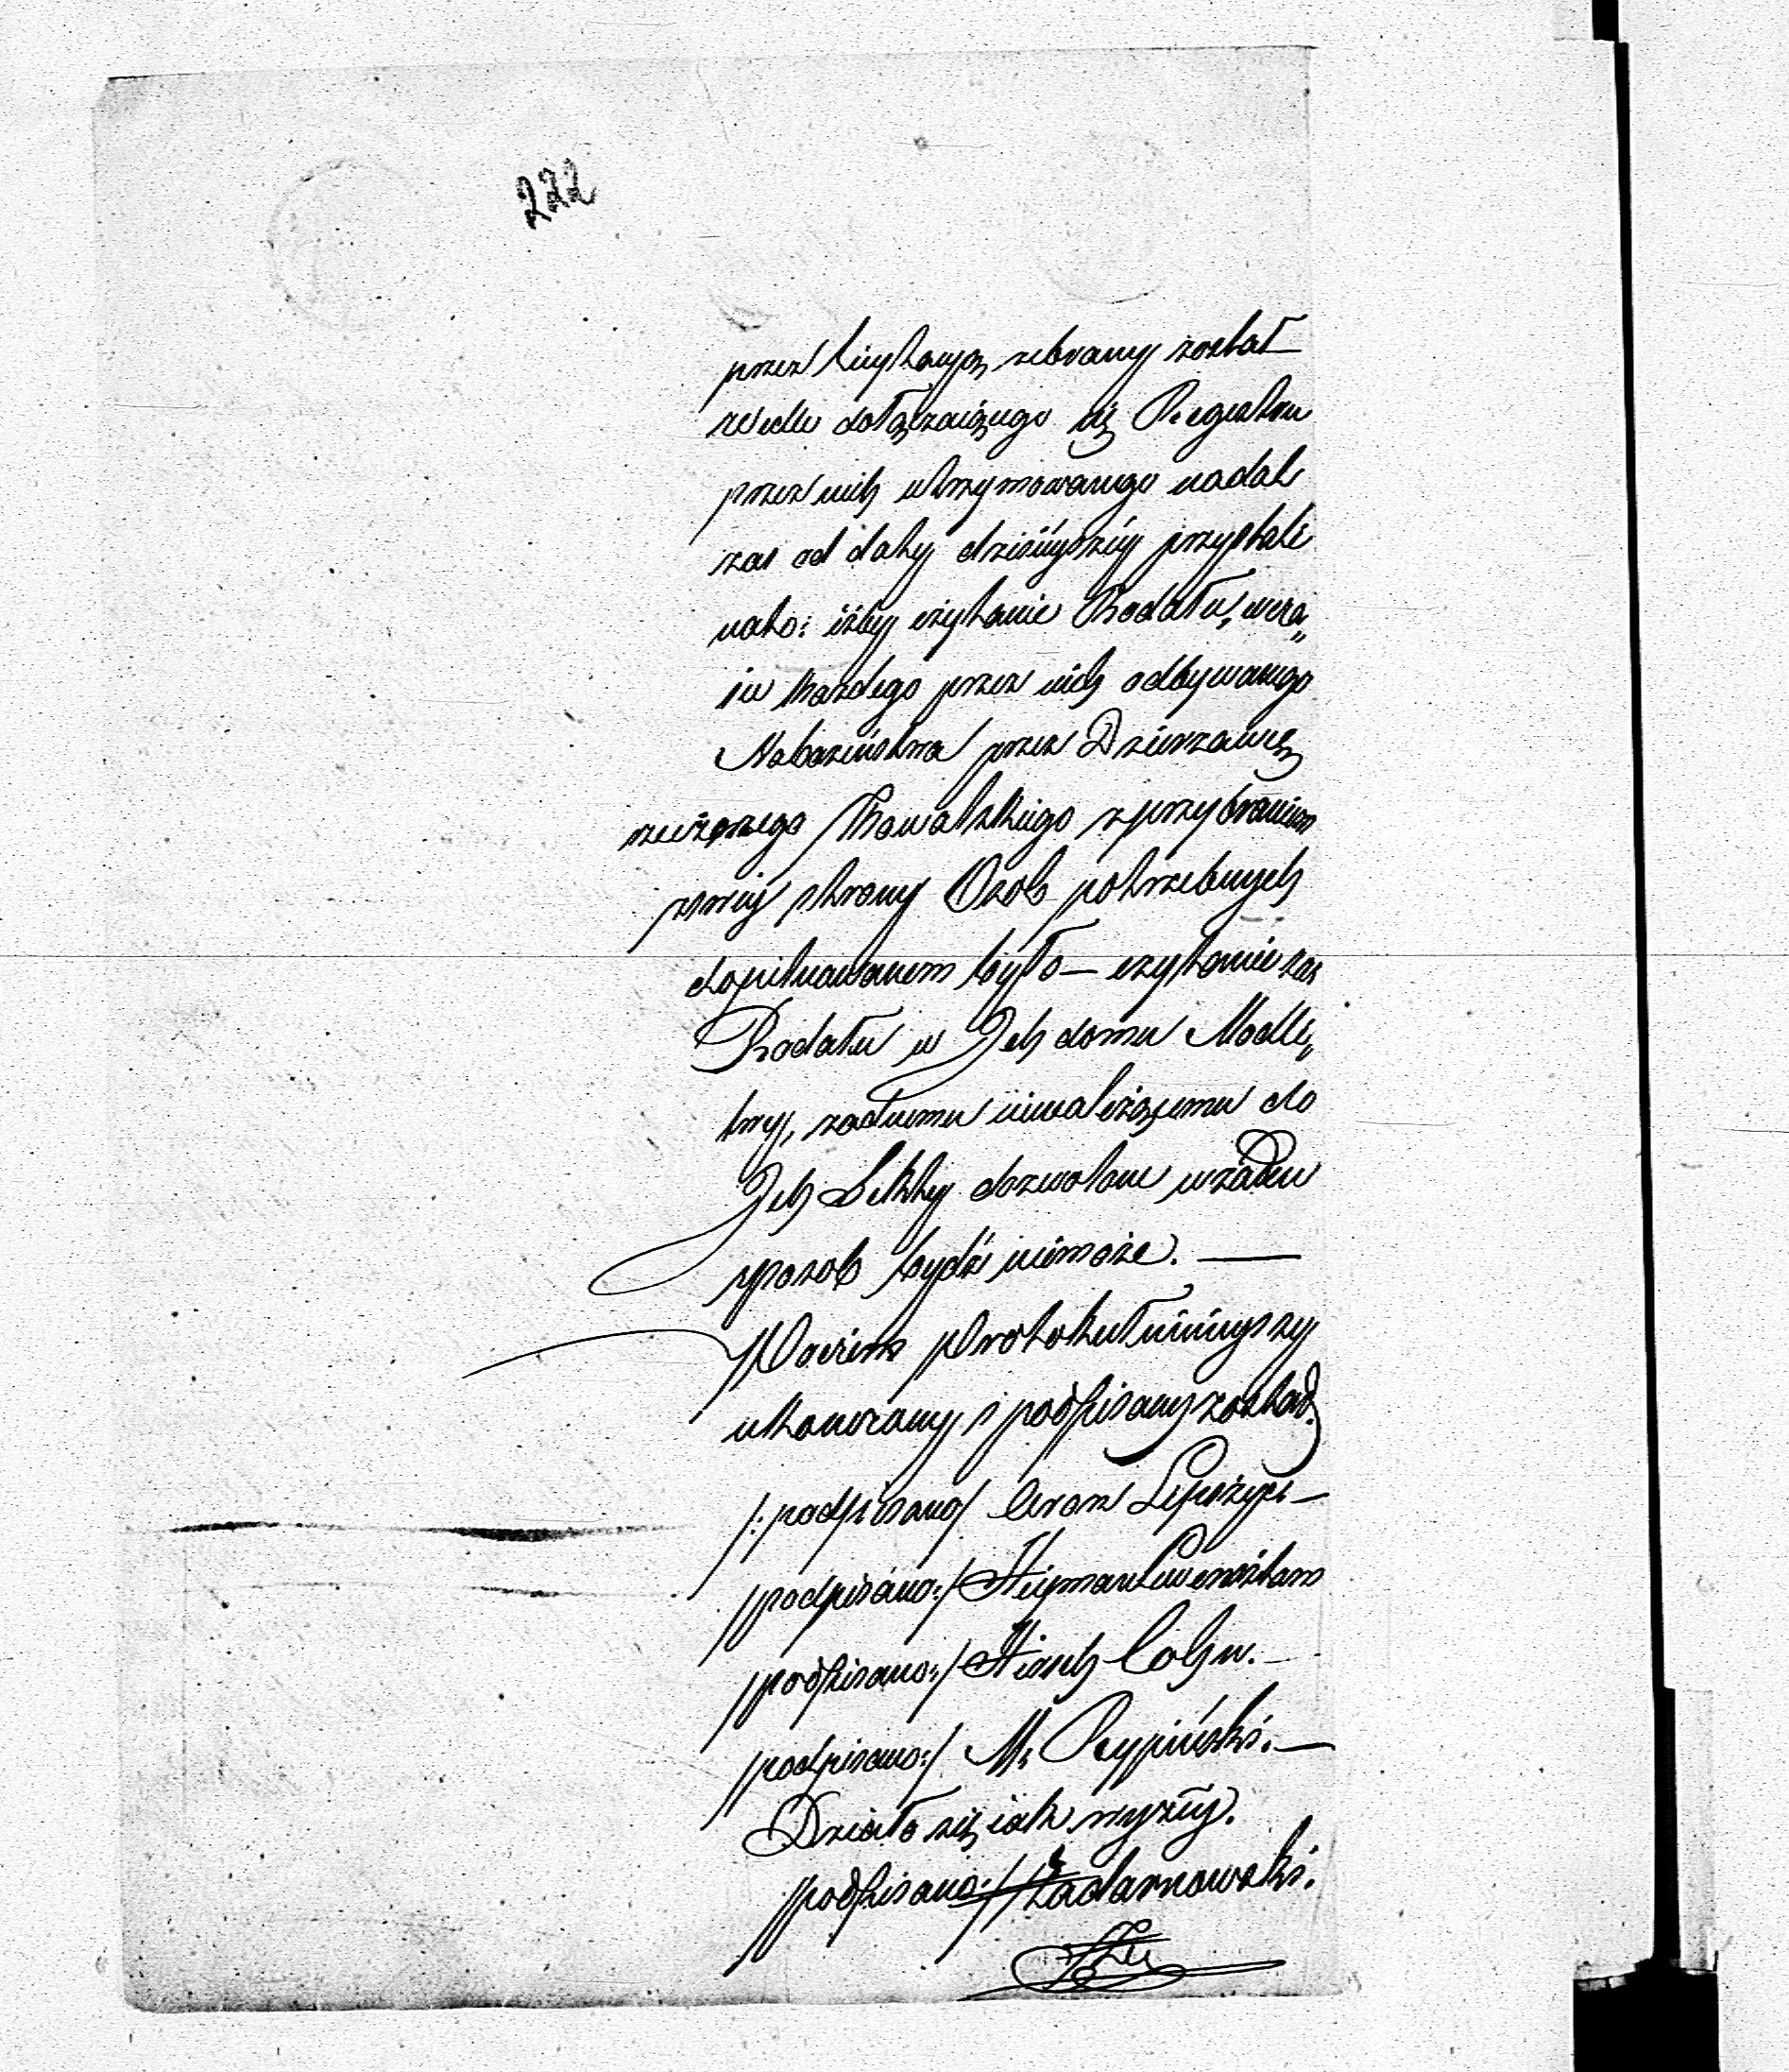 222
przez licytacyą zebrany został
wedle dołączaiącego się Regestru
przez nich utrzymowanego nadal
zaś od daty dzisieyszéy przystali
nato: iżby czytanie Rodału, wcza„
sie każdego przez nich odbywanego
Nabożeństwa przez Dzierzawcę
rzeczonego Kowalskiego z przybraniem
zswéy strony Osob potrzebnych
dopilnowanem było — czytanie zaś
Rodału w Jch domu Modli„
twy, żadnemu nienależącemu do
Jch Sekty dozwolone wżaden
sposob bydź niemoże. —
Poczem Protokuł ninieyszy
ukończony i podpisany został.
/: podpisano/ Aron Lipszyc —
/podpisano:/ Heyman Lewensztam
/podpisano:/ Hirsch Cohn. —
/podpisano:/ M. Rypiński. —
Działo się iak wyżéy.
/podpisano:/ Żadarnowski.